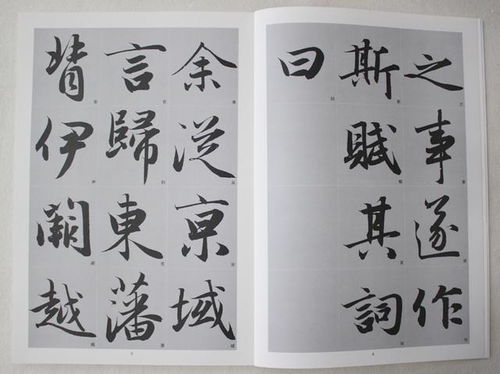 之事遂作
斯賦其詞
曰
余從京域
言歸東藩
背伊闕越